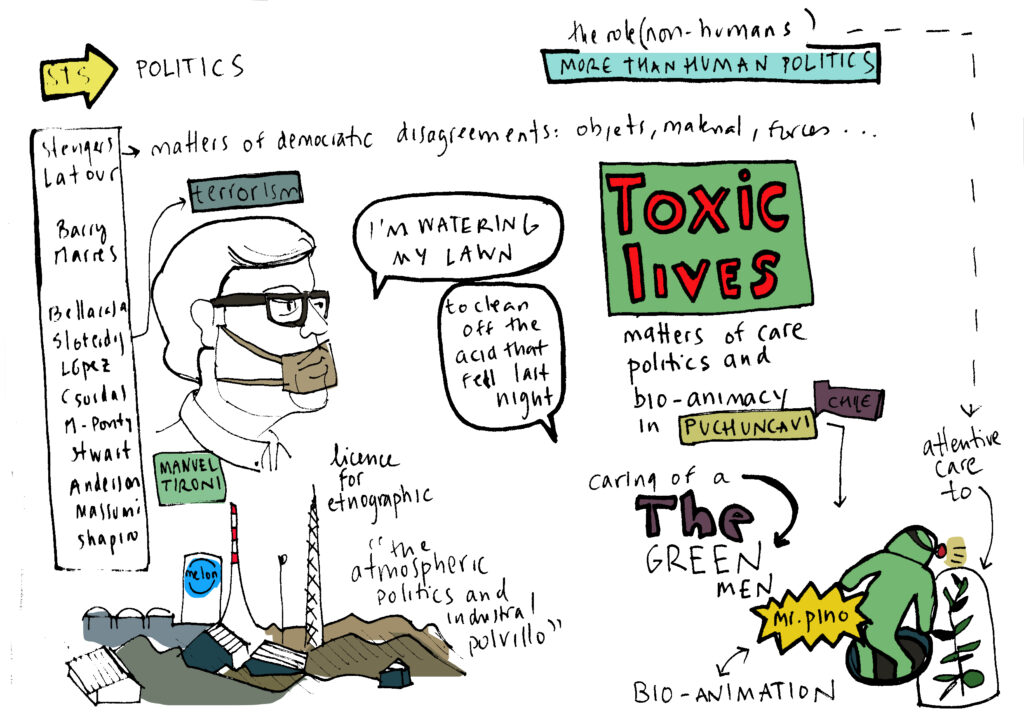 STS
POLITICS
the role (non-humans)
MORE THAN HUMAN POLITICS
Stengers
Latour
Barry
Marres
Bellacasa
Sloterdij
López
Csordas
M-Ponty
Stwart
Anderson
Massumi
Shapiro
matters of democratic disagreements: objets, material, forces ...
terrorism
I'M WATERING
MY LAWN
to clean
off the
acid that
fell last
night
MANUEL
TIRONI
licence
for
etnographic
"the
atmospheric
politics and
industrial
polvillo"
melon
TOXIC
LIVES
matters of care
politics and
bio-animacy
in PUCHUNCAVI
CHILE
caring of a
The
GREEN
MEN
attentive
care
to
Mr. Pino
BIO-ANIMATION